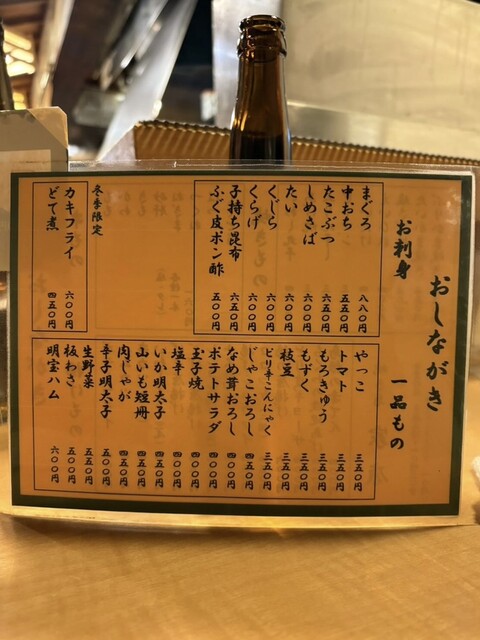 おしながき
お刺身
まぐろ 八八〇円
中おち 五五〇円
たこぶつ 六五〇円
しめさば 六〇〇円
たい 六〇〇円
くじら 六〇〇円
くらげ 六〇〇円
子持ち昆布 六五〇円
ふぐ皮ポン酢 五〇〇円
冬季限定
カキフライ 六〇〇円
どて煮 四五〇円
一品もの
やっこ 三五〇円
トマト 三五〇円
もろきゅう 三五〇円
もずく 三五〇円
枝豆 三五〇円
ピリ辛こんにゃく 三五〇円
じゃこおろし 四五〇円
なめ茸おろし 四〇〇円
ポテトサラダ 四〇〇円
玉子焼 四〇〇円
塩辛 四〇〇円
いか明太子 四五〇円
山いも短冊 四五〇円
肉じゃが 四五〇円
辛子明太子 五〇〇円
生野菜 五五〇円
板わさ 五〇〇円
明宝ハム 六〇〇円